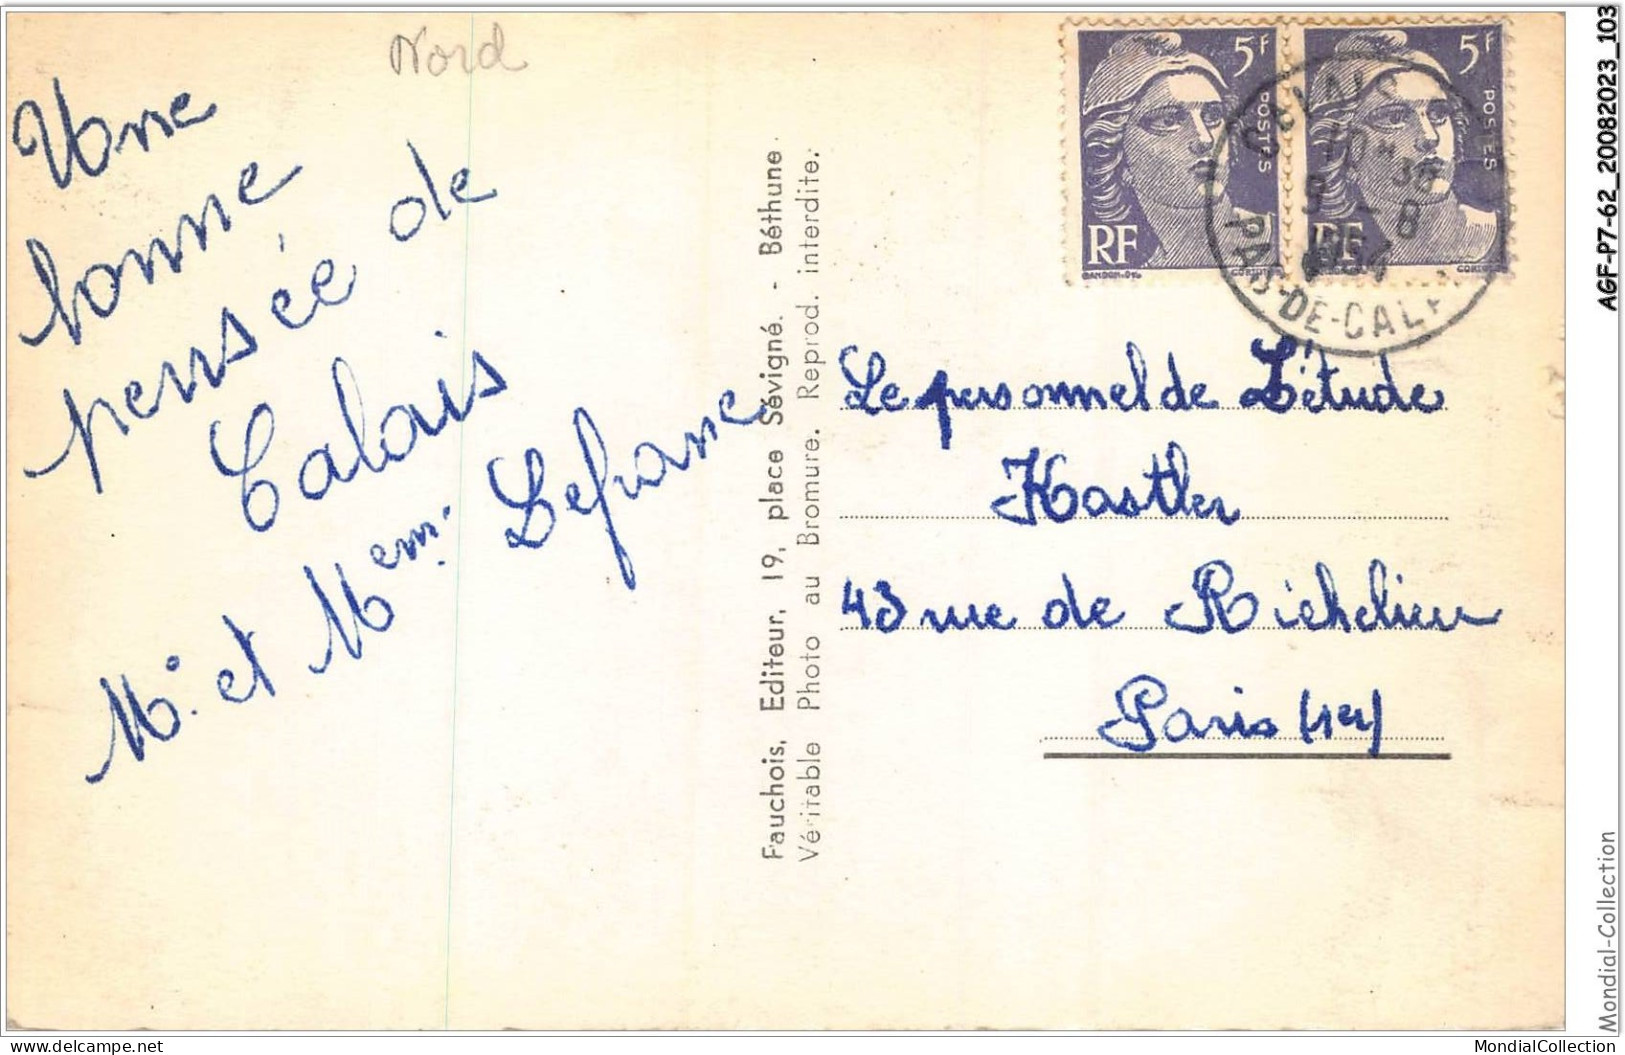 Nord
Une
bonne
pensée de
Calais
Mr. et Mem. Lefranc
Fauchois, Editeur, 19, place Sévigné. - Béthune
Véritable Photo au Bromure. Reprod. interdite.
5F
POSTES
RF
GANDON-DEL
5F
POSTES
RF
CALAIS
10H30
9 - 8
1954
PAS-DE-CAL
Le personnel de L'étude
Kastler
43 rue de Richelieu
Paris (1er)
AGF-P7-62_20082023_103
Mondial-Collection
delcampe.net
MondialCollection